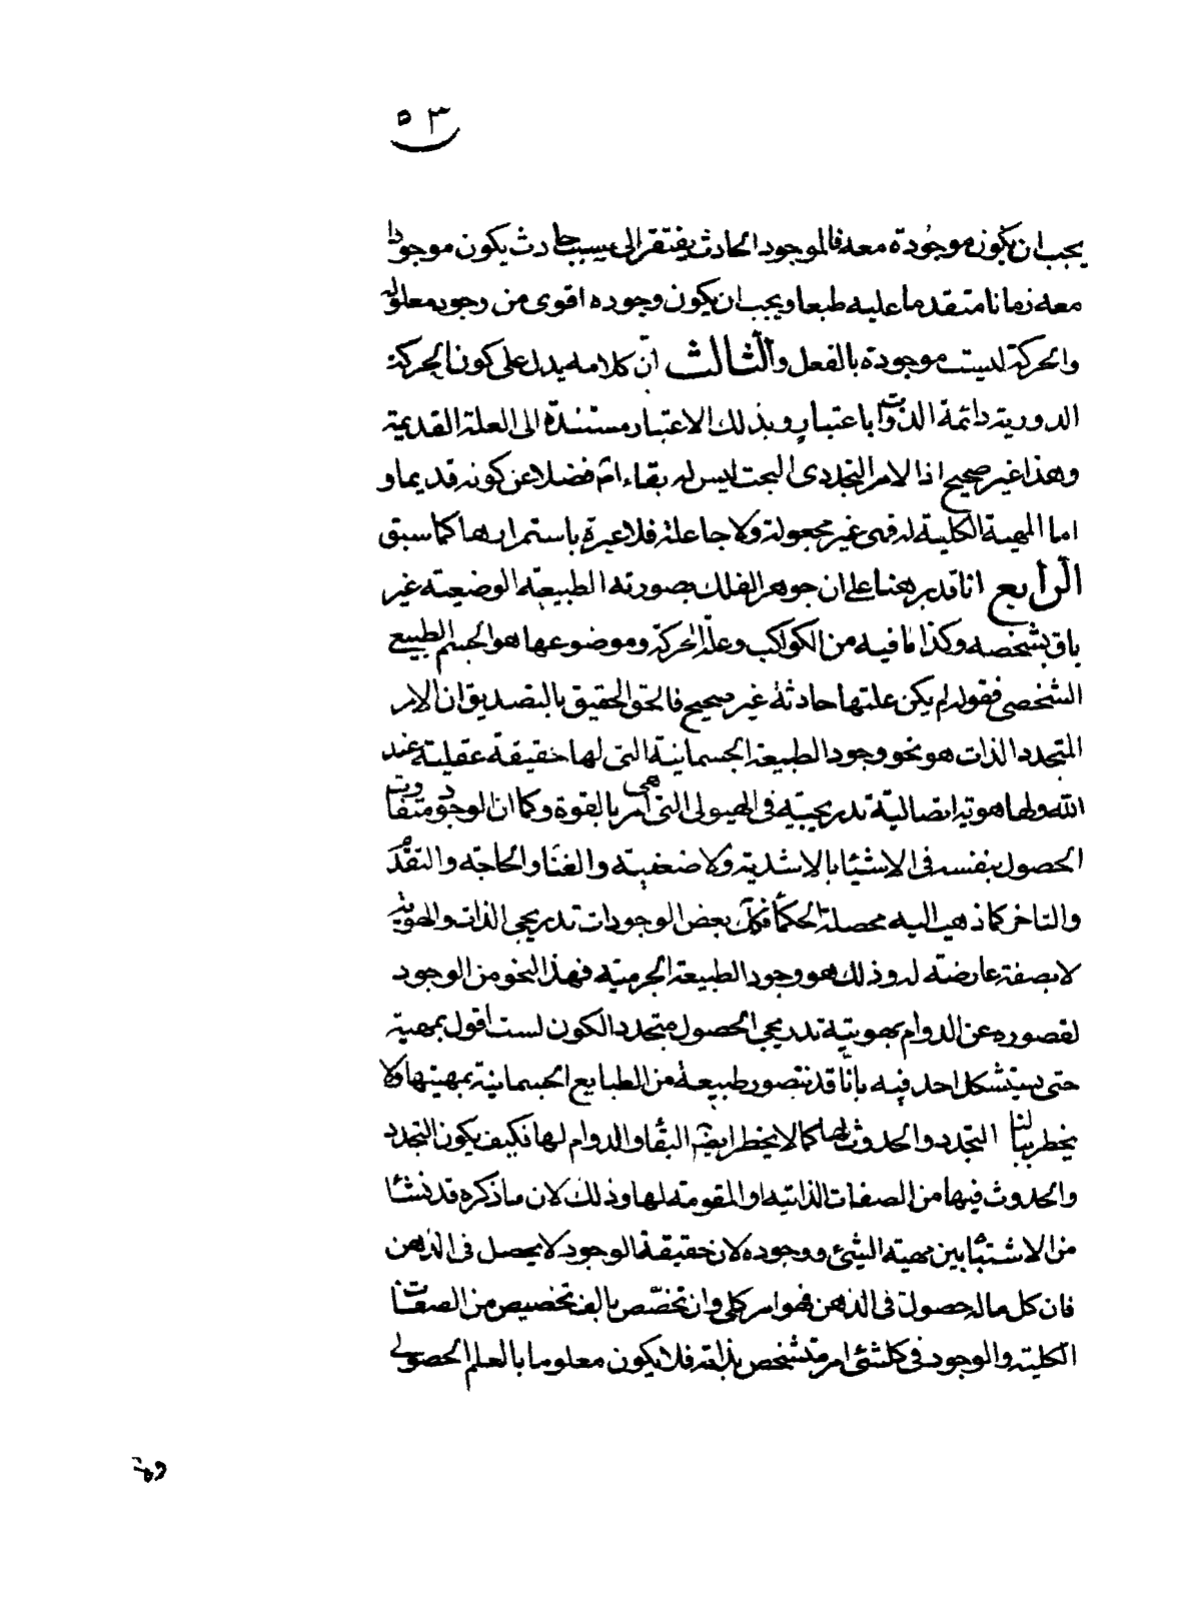 ٥٣
يجب ان يكون موجودة معه فالموجود الحادث يفتقر الى سبب حادث يكون موجودا
معه زمانا متقدما عليه طبعا ويجب ان يكون وجوده اقوى من وجود معلوله
والحركة ليست موجودة بالفعل والثالث انّ كلامه يدل على كون الحركة
الدورية دائمة الذوات باعتبار وبذلك الاعتبار مستندة الى العلة القديمة
وهذا غير صحيح اذا الامر التجددى البحت ليس له بقاء اثم فضلا عن كونه قديما و
اما المهية الكلية له فهى غير مجعولة ولا جاعلة فلا عبرة باستمرارها كما سبق
الرابع انا قد برهنا على ان جوهر الفلك بصورته الطبيعة الوضعية غير
باق بشخصه وكذا ما فيه من الكواكب وعلة الحركة وموضوعها هو الجسم الطبيع
الشخصى فقوله لم يكن علتها حادثة غير صحيح فالحق الحقيق بالتصديق ان الامر
المتجدد الذات هو نحو وجود الطبيعة الجسمانية التى لها حقيقة عقلية عند
الله ولها هوية اتصالية تدريجيتة فى الهيولى التى هى امر بالقوة وكما ان الوجود متفاوت
الحصول بنفسه فى الاشيا بالاشدية ولاضعفيته والغنا والحاجة والتقدم
والتاخر كما ذهب اليه محصلة الحكما فكك بعض الوجودات تدريجى الذات والهوية
لا بصفة عارضة له وذلك هو وجود الطبيعة الجرمية فهذا النحو من الوجود
لقصوره عن الدوام بهويتة تدريجى الحصول متجدد الكون لست اقول بمهية
حتى يستشكل احد فيه بانا قد نتصور طبيعة من الطبايع الجسمانية بمهيتها ولا
يخطر ببالنا التجدد والحدوث لها كما لا يخطر ايضا البقا والدوام لها فكيف يكون التجدد
والحدوث فيها من الصفات الذاتية او المقومة لها وذلك لان ما ذكره قد نشا
من الاشتبا بين مهية الشئ ووجوده لان حقيقة الوجود لا يحصل فى الذهن
فان كل ما له حصول فى الذهن فهو امر كلى وان تخصّص بالف تخصيص من الصفات
الكلية والوجود فى كلشئ امر متشخص بذاته فلا يكون معلوما بالعلم الحصولى